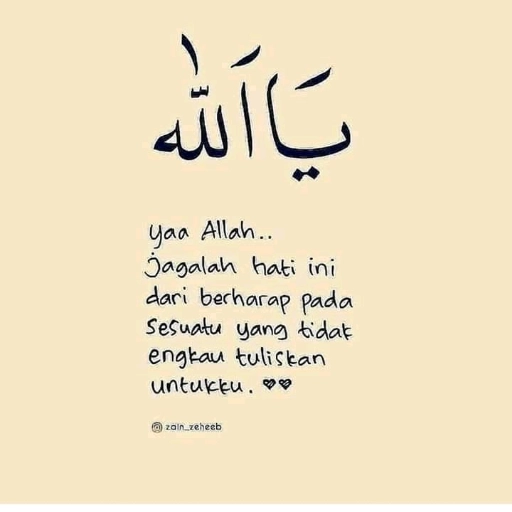 يَا اَللّٰه
yaa Allah..
jagalah hati ini
dari berharap pada
sesuatu yang tidak
engkau tuliskan
untukku.
zain_zeheeb